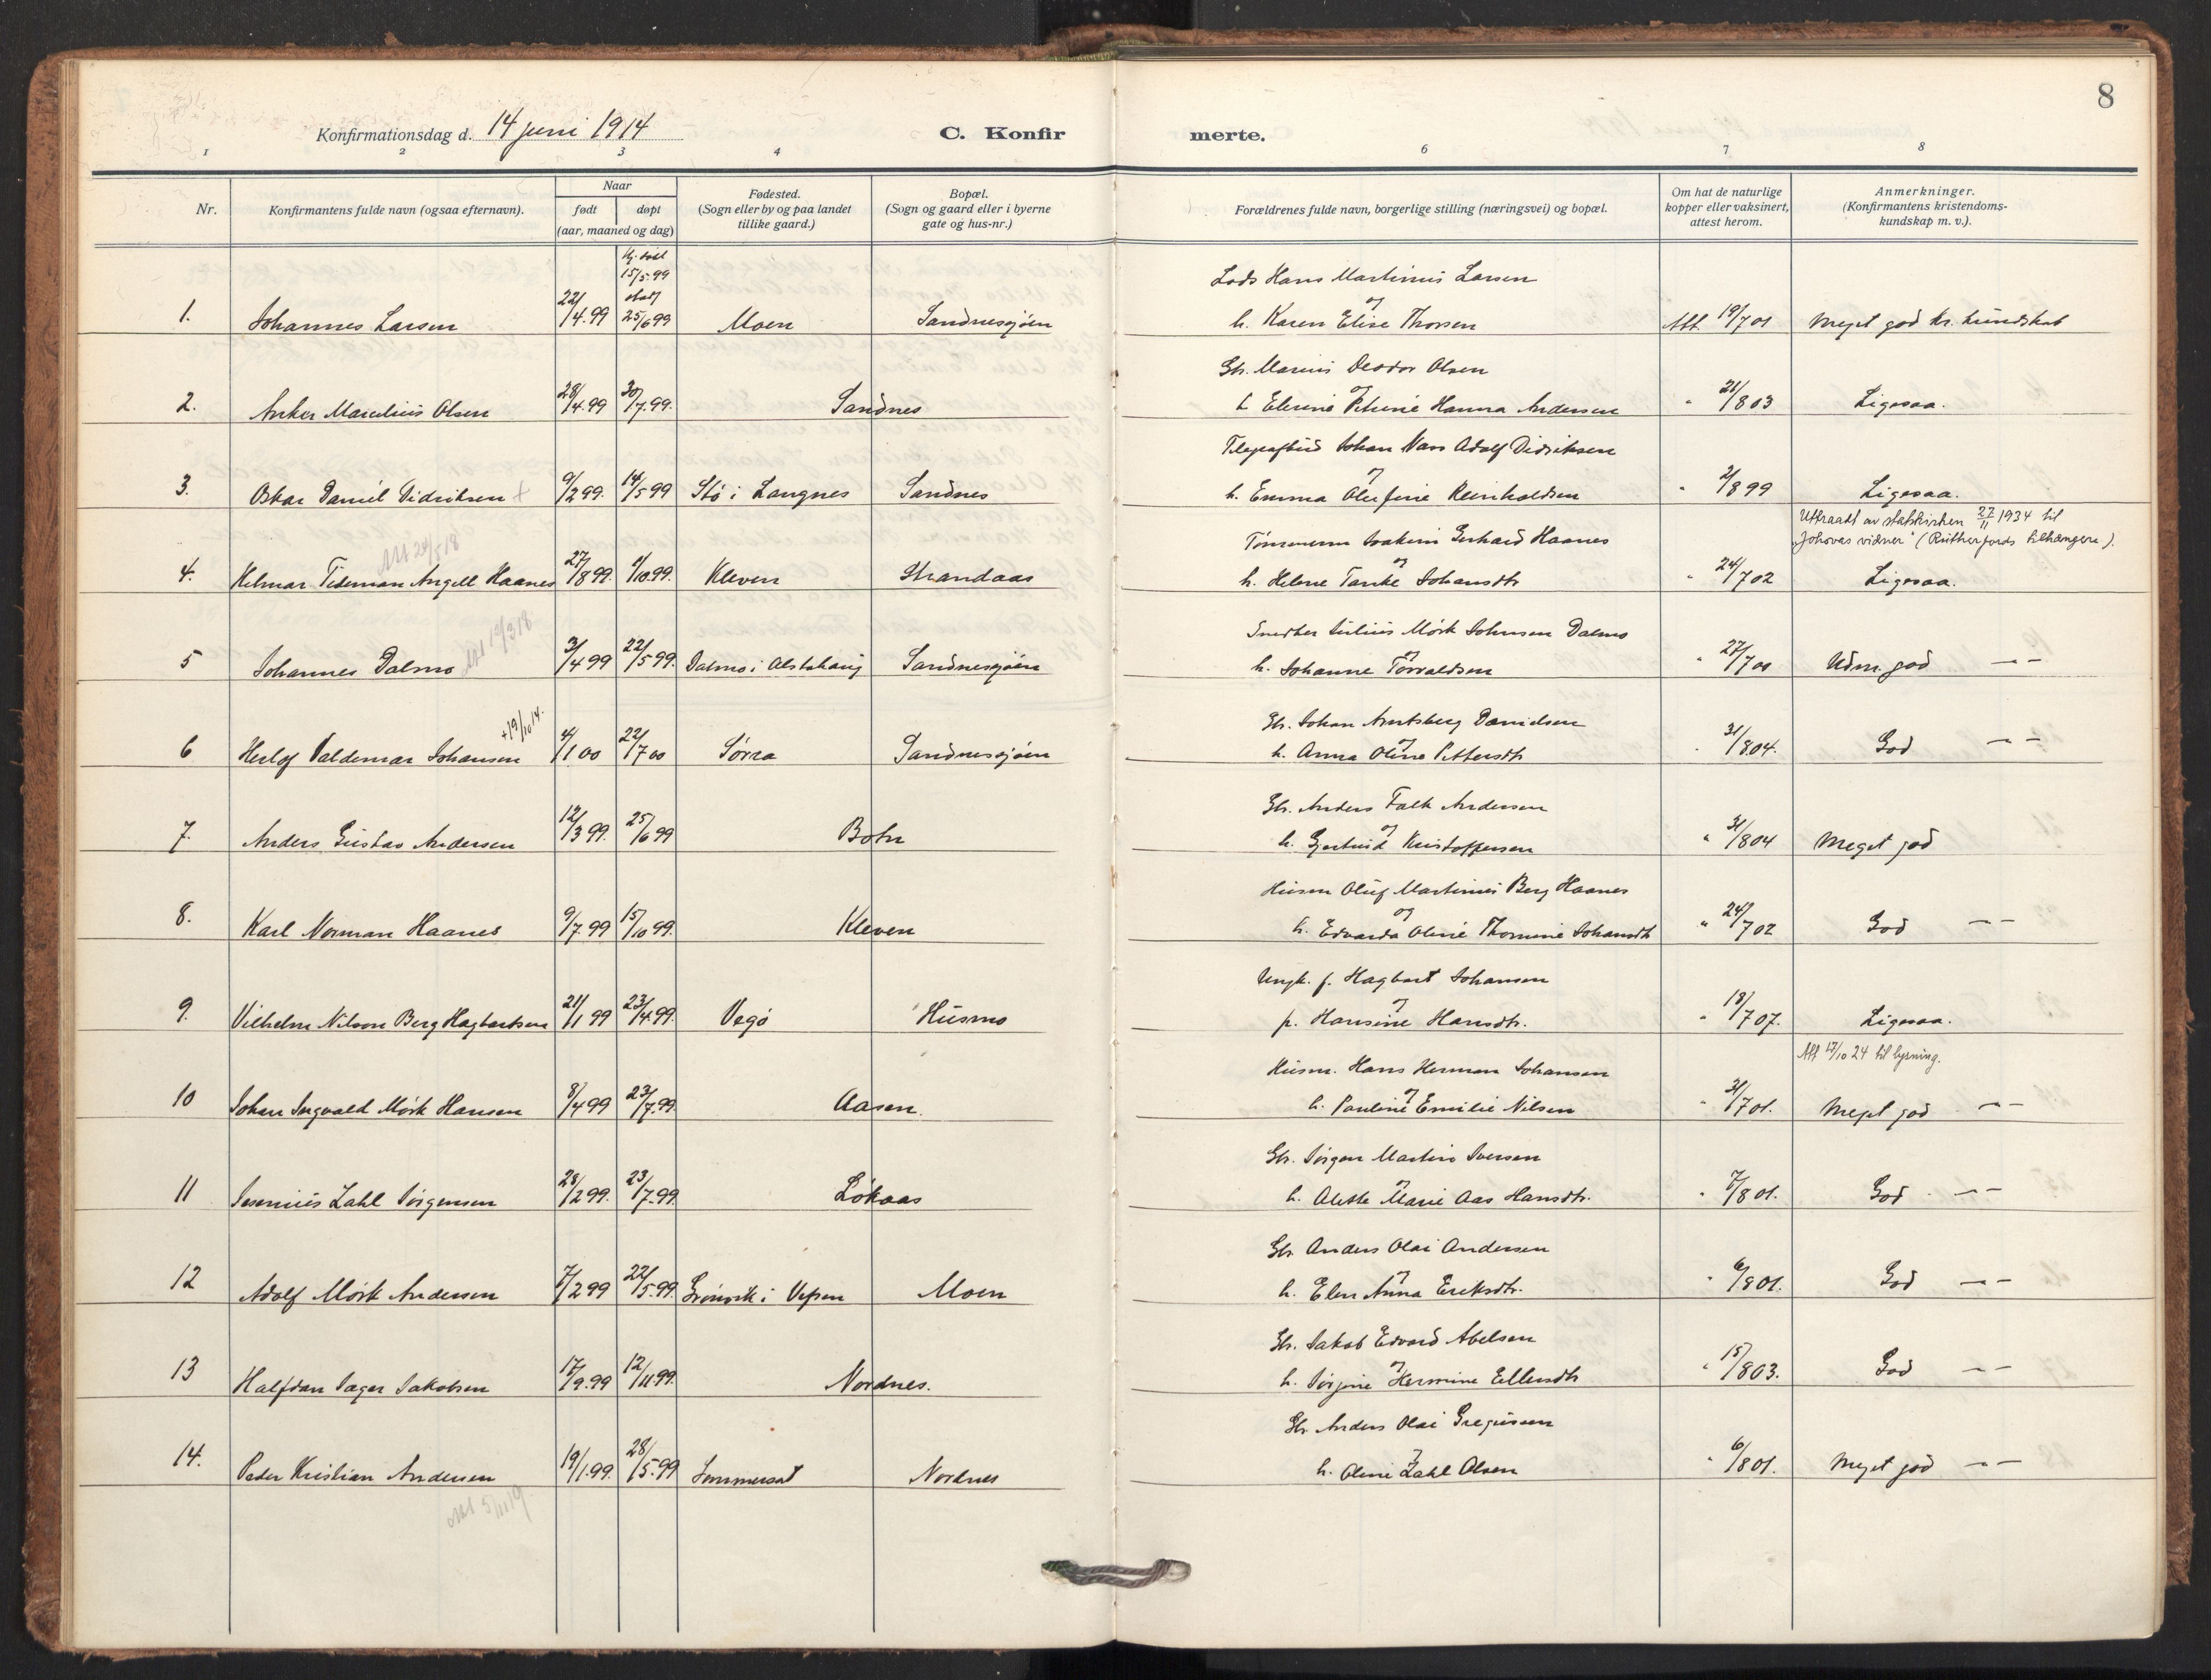 8
Konfirmationsdag d. 14 juni 1914
C. Konfir merte.
1 2 3 4 6 7 8
Nr.
Konfirmantens fulde navn (ogsaa efternavn).
Naar
født døpt
(aar, maaned og dag)
Fødested.
(Sogn eller by og paa landet
tillike gaard.)
Bopæl.
(Sogn og gaard eller i byerne
gate og hus-nr.)
Forældrenes fulde navn, borgerlige stilling (næringsvei) og bopæl.
Om hat de naturlige
kopper eller vaksinert,
attest herom.
Anmerkninger.
(Konfirmantens kristendoms-
kundskap m. v.).
15/5.99
Lods Hans Martinus Larsen
og
1. Johannes Larsen 22/4.99 25/6 99 Moen Sandnessjøen h. Karen Elise Thorsen Att. 19/7 01 Meget god kr. kundskab
Gb. Marius Deodor Olsen
og
2. Anker Marelius Olsen 28/4.99 30/7.99. Sandnes h Elerine Petrine Hanna Andersen " 21/8 03 Ligesaa.
Telegrafbud Johan Nars Adolf Didriksen
og
3. Oskar Daniel Didriksen + 9/2 99. 14/5 99 Stø i Langnes Sandnes h. Emma Olufine Reinholdsen " 2/8 99 Ligesaa.
Uttraadt av statskirken 27/11 1934 til
"Jehovas vidner" (Rutherfords tilhængere).
Att 24/5 18
Tømmerm Joakim Gerhard Haanes
og
4. Helmar Tideman Angell Haanes 27/8 99. 1/10.99. Kleven Strandaas h. Helene Tanke Johansdtr " 24/7 02 Ligesaa.
Att 12/3 18
Snedker Julius Mørk Johnsen Dalmo
og
5 Johannes Dalmo 3/4 99 22/5 99. Dalmo i Alstahaug Sandnessjøen h. Johanne Torvaldsen " 27/7 00 Udm. god — —
+ 19/10 14.
Gb. Johan Arntsberg Danielsen
og
6 Herlof Valdemar Johansen 4/1 00 22/7 00 Sørra Sandnessjøen h. Anna Oline Pettersdtr " 31/8 04. God — —
Gb. Anders Falk Andersen
og
7. Anders Gustav Andersen 12/3 99. 25/6 99 Botn h. Gjertrud Kristoffersen " 31/8 04 Meget god
Husm Oluf Martinus Berg Haanes
og
8. Karl Norman Haanes 9/7.99 15/10 99. Kleven h. Edvarda Oline Thomine Johansdtr " 24/7 02 God — —
Ungk. f. Hagbart Johansen
og
9. Vilhelm Nilson Berg Hagbartsen 21/1 99 23/4.99. Vegø Husmo p. Hansine Hansdtr. " 18/7 07. Ligesaa.
Att 17/10 24 til lysning.
Husm. Hans Herman Johansen
og
10 Johan Ingvald Mørk Hansen 8/4 99 23/7.99. Aasen. h. Pauline Emilie Nilsen " 31/7 01. Meget god — —
Gb. Jørgen Martin Iversen
og
11 Jesenius Zahl Jørgensen 28/2 99. 23/7.99. Løkaas h. Alette Marie Aas Hansdtr. " 7/8 01. God — —
Gb Anders Olai Andersen
og
12 Adolf Mørk Andersen 7/2 99 22/5.99. Grønvik i Vefsen Moen h. Elen Anna Eriksdtr. " 6/8 01. God — —
Gb. Jakob Edvard Abelsen
og
13 Halfdan Jæger Jakobsen 17/9.99 12/11 99. Nordnes. h. Jørgine Hermine Ellensdtr " 15/8 03. God — —
Gb Anders Olai Gregusen
og
14. Peder Kristian Andersen 19/1.99. 28/5.99 Sommerset Nordnes h. Oline Zahl Olsen " 6/8 01. Meget god — —
Att 5/11 19.